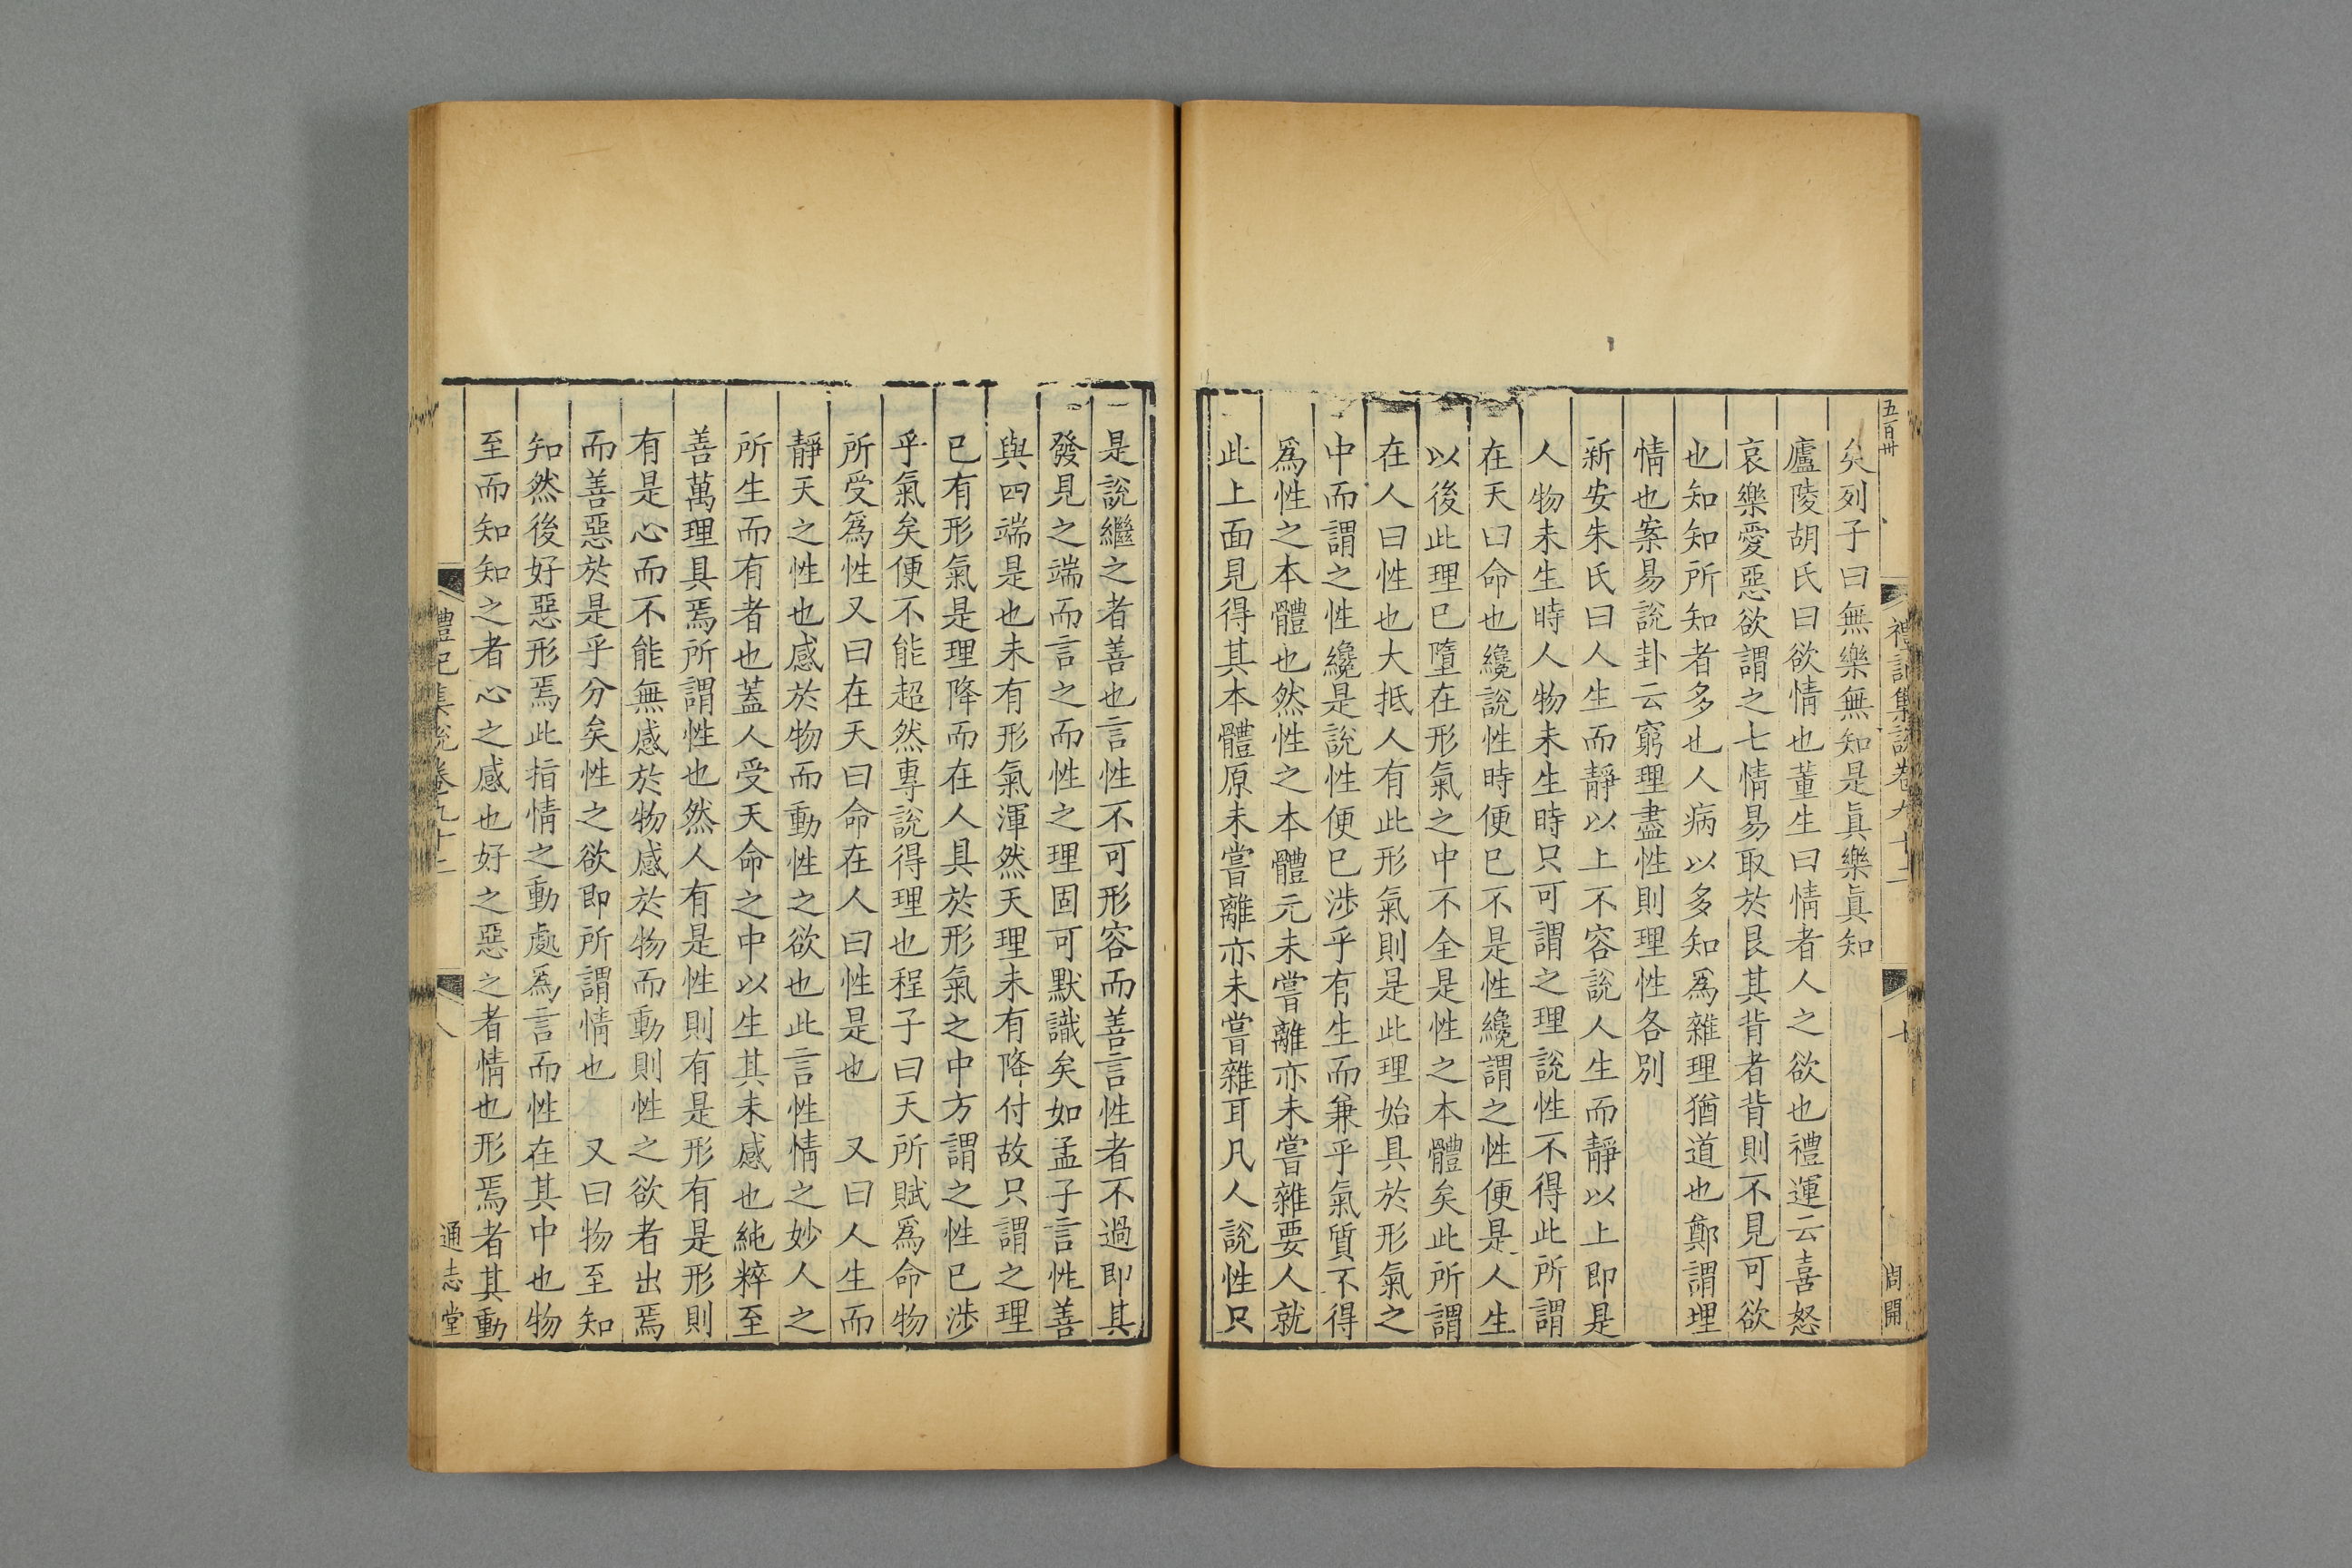 五百卅
禮記集說卷九十二
七
周開
矣列子曰無樂無知是眞樂眞知
廬陵胡氏曰欲情也董生曰情者人之欲也禮運云喜怒
哀樂愛惡欲謂之七情易取於艮其背者背則不見可欲
也知知所知者多也人病以多知爲雜理猶道也鄭謂理
情也案易說卦云窮理盡性則理性各別
新安朱氏曰人生而靜以上不容說人生而靜以上即是
人物未生時人物未生時只可謂之理說性不得此所謂
在天曰命也纔說性時便已不是性纔謂之性便是人生
以後此理已墮在形氣之中不全是性之本體矣此所謂
在人曰性也大抵人有此形氣則是此理始具於形氣之
中而謂之性纔是說性便已涉乎有生而兼乎氣質不得
爲性之本體也然性之本體元未嘗離亦未嘗雜要人就
此上面見得其本體原未嘗離亦未嘗雜耳凡人說性只
是說繼之者善也言性不可形容而善言性者不過即其
發見之端而言之而性之理固可默識矣如孟子言性善
與四端是也未有形氣渾然天理未有降付故只謂之理
已有形氣是理降而在人具於形氣之中方謂之性已涉
乎氣矣便不能超然專說得理也程子曰天所賦爲命物
所受爲性又曰在天曰命在人曰性是也　又曰人生而
靜天之性也感於物而動性之欲也此言性情之妙人之
所生而有者也蓋人受天命之中以生其未感也純粹至
善萬理具焉所謂性也然人有是性則有是形有是形則
有是心而不能無感於物感於物而動則性之欲者出焉
而善惡於是乎分矣性之欲即所謂情也　又曰物至知
知然後好惡形焉此指情之動處爲言而性在其中也物
至而知知之者心之感也好之惡之者情也形焉者其動
禮記集說卷九十二
八
通志堂